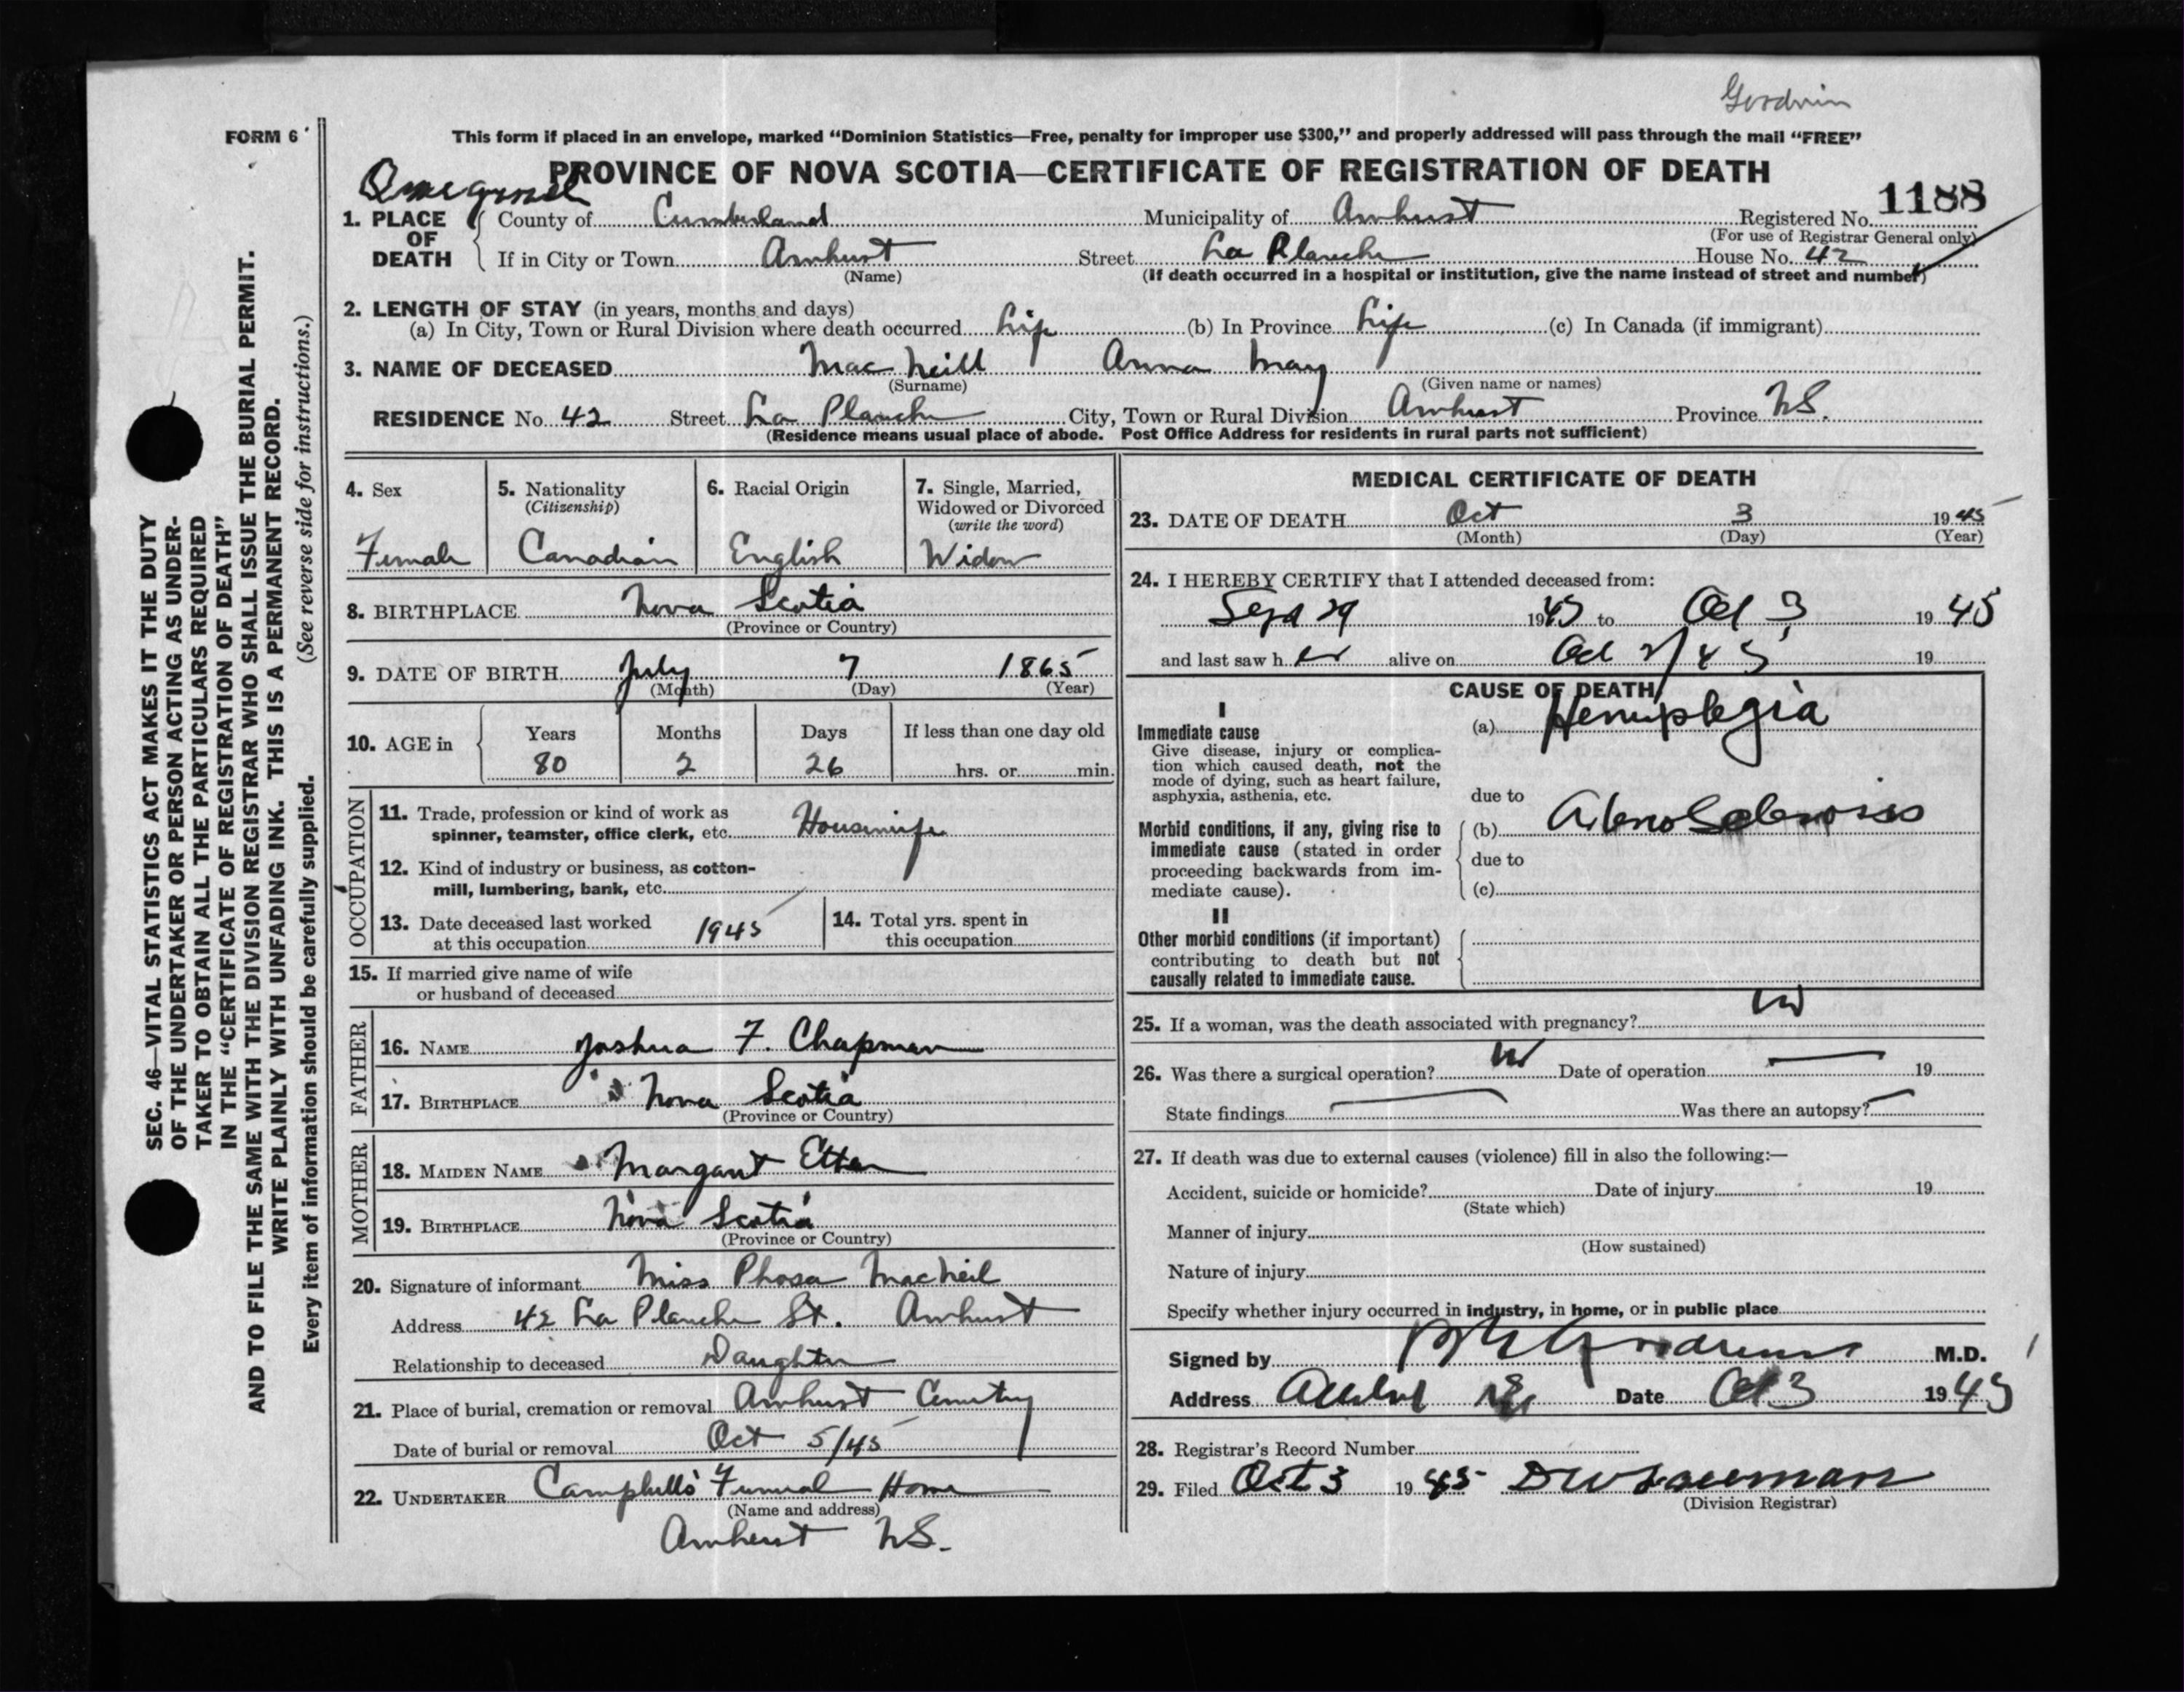 Goodwin
FORM 6
This form if placed in an envelope, marked “Dominion Statistics—Free, penalty for improper use $300,” and properly addressed will pass through the mail “FREE”
PROVINCE OF NOVA SCOTIA—CERTIFICATE OF REGISTRATION OF DEATH
1188
1. PLACE OF DEATH
County of Cumberland Municipality of Amherst Registered No.
(For use of Registrar General only)
If in City or Town Amherst Street La Planche House No. 42
(Name) (If death occurred in a hospital or institution, give the name instead of street and number)
2. LENGTH OF STAY (in years, months and days)
(a) In City, Town or Rural Division where death occurred Life (b) In Province Life (c) In Canada (if immigrant)
3. NAME OF DECEASED MacNeill Anna May
(Surname) (Given name or names)
RESIDENCE No. 42 Street La Planche City, Town or Rural Division Amherst Province NS.
(Residence means usual place of abode. Post Office Address for residents in rural parts not sufficient)
4. Sex Female
5. Nationality (Citizenship) Canadian
6. Racial Origin English
7. Single, Married, Widowed or Divorced (write the word) Widow
8. BIRTHPLACE Nova Scotia
(Province or Country)
9. DATE OF BIRTH July 7 1865
(Month) (Day) (Year)
10. AGE in Years 80 Months 2 Days 26 If less than one day old hrs. or min.
OCCUPATION
11. Trade, profession or kind of work as
spinner, teamster, office clerk, etc. Housewife
12. Kind of industry or business, as cotton-
mill, lumbering, bank, etc.
13. Date deceased last worked
at this occupation 1945
14. Total yrs. spent in
this occupation
15. If married give name of wife
or husband of deceased
FATHER
16. NAME Joshua F. Chapman
17. BIRTHPLACE Nova Scotia
(Province or Country)
MOTHER
18. MAIDEN NAME Margaret Etter
19. BIRTHPLACE Nova Scotia
(Province or Country)
20. Signature of informant Miss Phosa MacNeil
Address 42 La Planche St. Amherst
Relationship to deceased Daughter
21. Place of burial, cremation or removal Amherst Cemetry
Date of burial or removal Oct 5/45
22. UNDERTAKER Campbell's Funeral Home
(Name and address)
Amherst NS.
MEDICAL CERTIFICATE OF DEATH
23. DATE OF DEATH Oct 3 1945
(Month) (Day) (Year)
24. I HEREBY CERTIFY that I attended deceased from:
Sept 29 1945 to Oct 3 1945
and last saw her alive on Oct 2/45 19
CAUSE OF DEATH
I
Immediate cause
Give disease, injury or complica-
tion which caused death, not the
mode of dying, such as heart failure,
asphyxia, asthenia, etc.
(a) Hemiplegia
due to
Morbid conditions, if any, giving rise to
immediate cause (stated in order
proceeding backwards from im-
mediate cause).
(b) ArterioSclerosis
due to
(c)
II
Other morbid conditions (if important)
contributing to death but not
causally related to immediate cause.
25. If a woman, was the death associated with pregnancy? no
26. Was there a surgical operation? no Date of operation 19
State findings Was there an autopsy?
27. If death was due to external causes (violence) fill in also the following:—
Accident, suicide or homicide? Date of injury 19
(State which)
Manner of injury
(How sustained)
Nature of injury
Specify whether injury occurred in industry, in home, or in public place
Signed by M.D.
Address Amherst NS Date Oct 3 1945
28. Registrar's Record Number
29. Filed Oct 3 1945
(Division Registrar)
SEC. 46—VITAL STATISTICS ACT MAKES IT THE DUTY
OF THE UNDERTAKER OR PERSON ACTING AS UNDER-
TAKER TO OBTAIN ALL THE PARTICULARS REQUIRED
IN THE “CERTIFICATE OF REGISTRATION OF DEATH”
AND TO FILE THE SAME WITH THE DIVISION REGISTRAR WHO SHALL ISSUE THE BURIAL PERMIT.
WRITE PLAINLY WITH UNFADING INK. THIS IS A PERMANENT RECORD.
Every item of information should be carefully supplied. (See reverse side for instructions.)